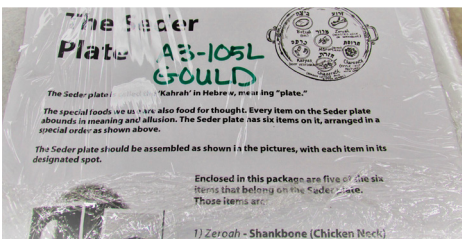 The Seder
Plate AB-105L
GOULD
The Seder plate is called the 'Kahrah' in Hebrew, meaning "plate."
The special foods we use are also food for thought. Every item on the Seder plate
abounds in meaning and allusion. The Seder plate has six items on it, arranged in a
special order as shown above.
The Seder plate should be assembled as shown in the pictures, with each item in its
designated spot.
Enclosed in this package are five of the six
items that belong on the Seder plate.
Those items are:
1) Zeroah - Shankbone (Chicken Neck)